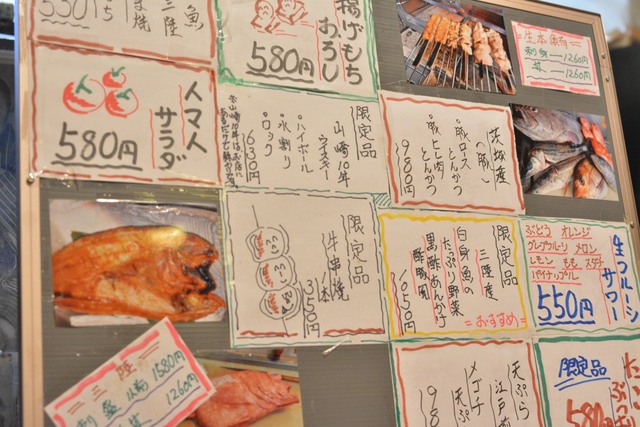 三陸
焼魚
揚げもち
おろし
580円
生本まぐろ
刺身 1260円
丼 1260円
トマト
サラダ
580円
限定品
山崎10年
ウイスキー
・ハイボール
・水割り
・ロック
1630円
茨城産
(豚)
・豚ロース
とんかつ
・豚ヒレ肉
とんかつ
980円
限定品
牛串焼
1本
350円
限定品
三陸産
白身魚の
たっぷり野菜
黒酢あんかけ
酢豚風
1050円
=おすすめ=
生フルーツ
サワー
ぶどう オレンジ
グレープフルーツ メロン
レモン もも スダチ
パイナップル
550円
三陸
1580円
1260円
天ぷら
江戸前
メゴチ
天ぷ
98
限定品
580円